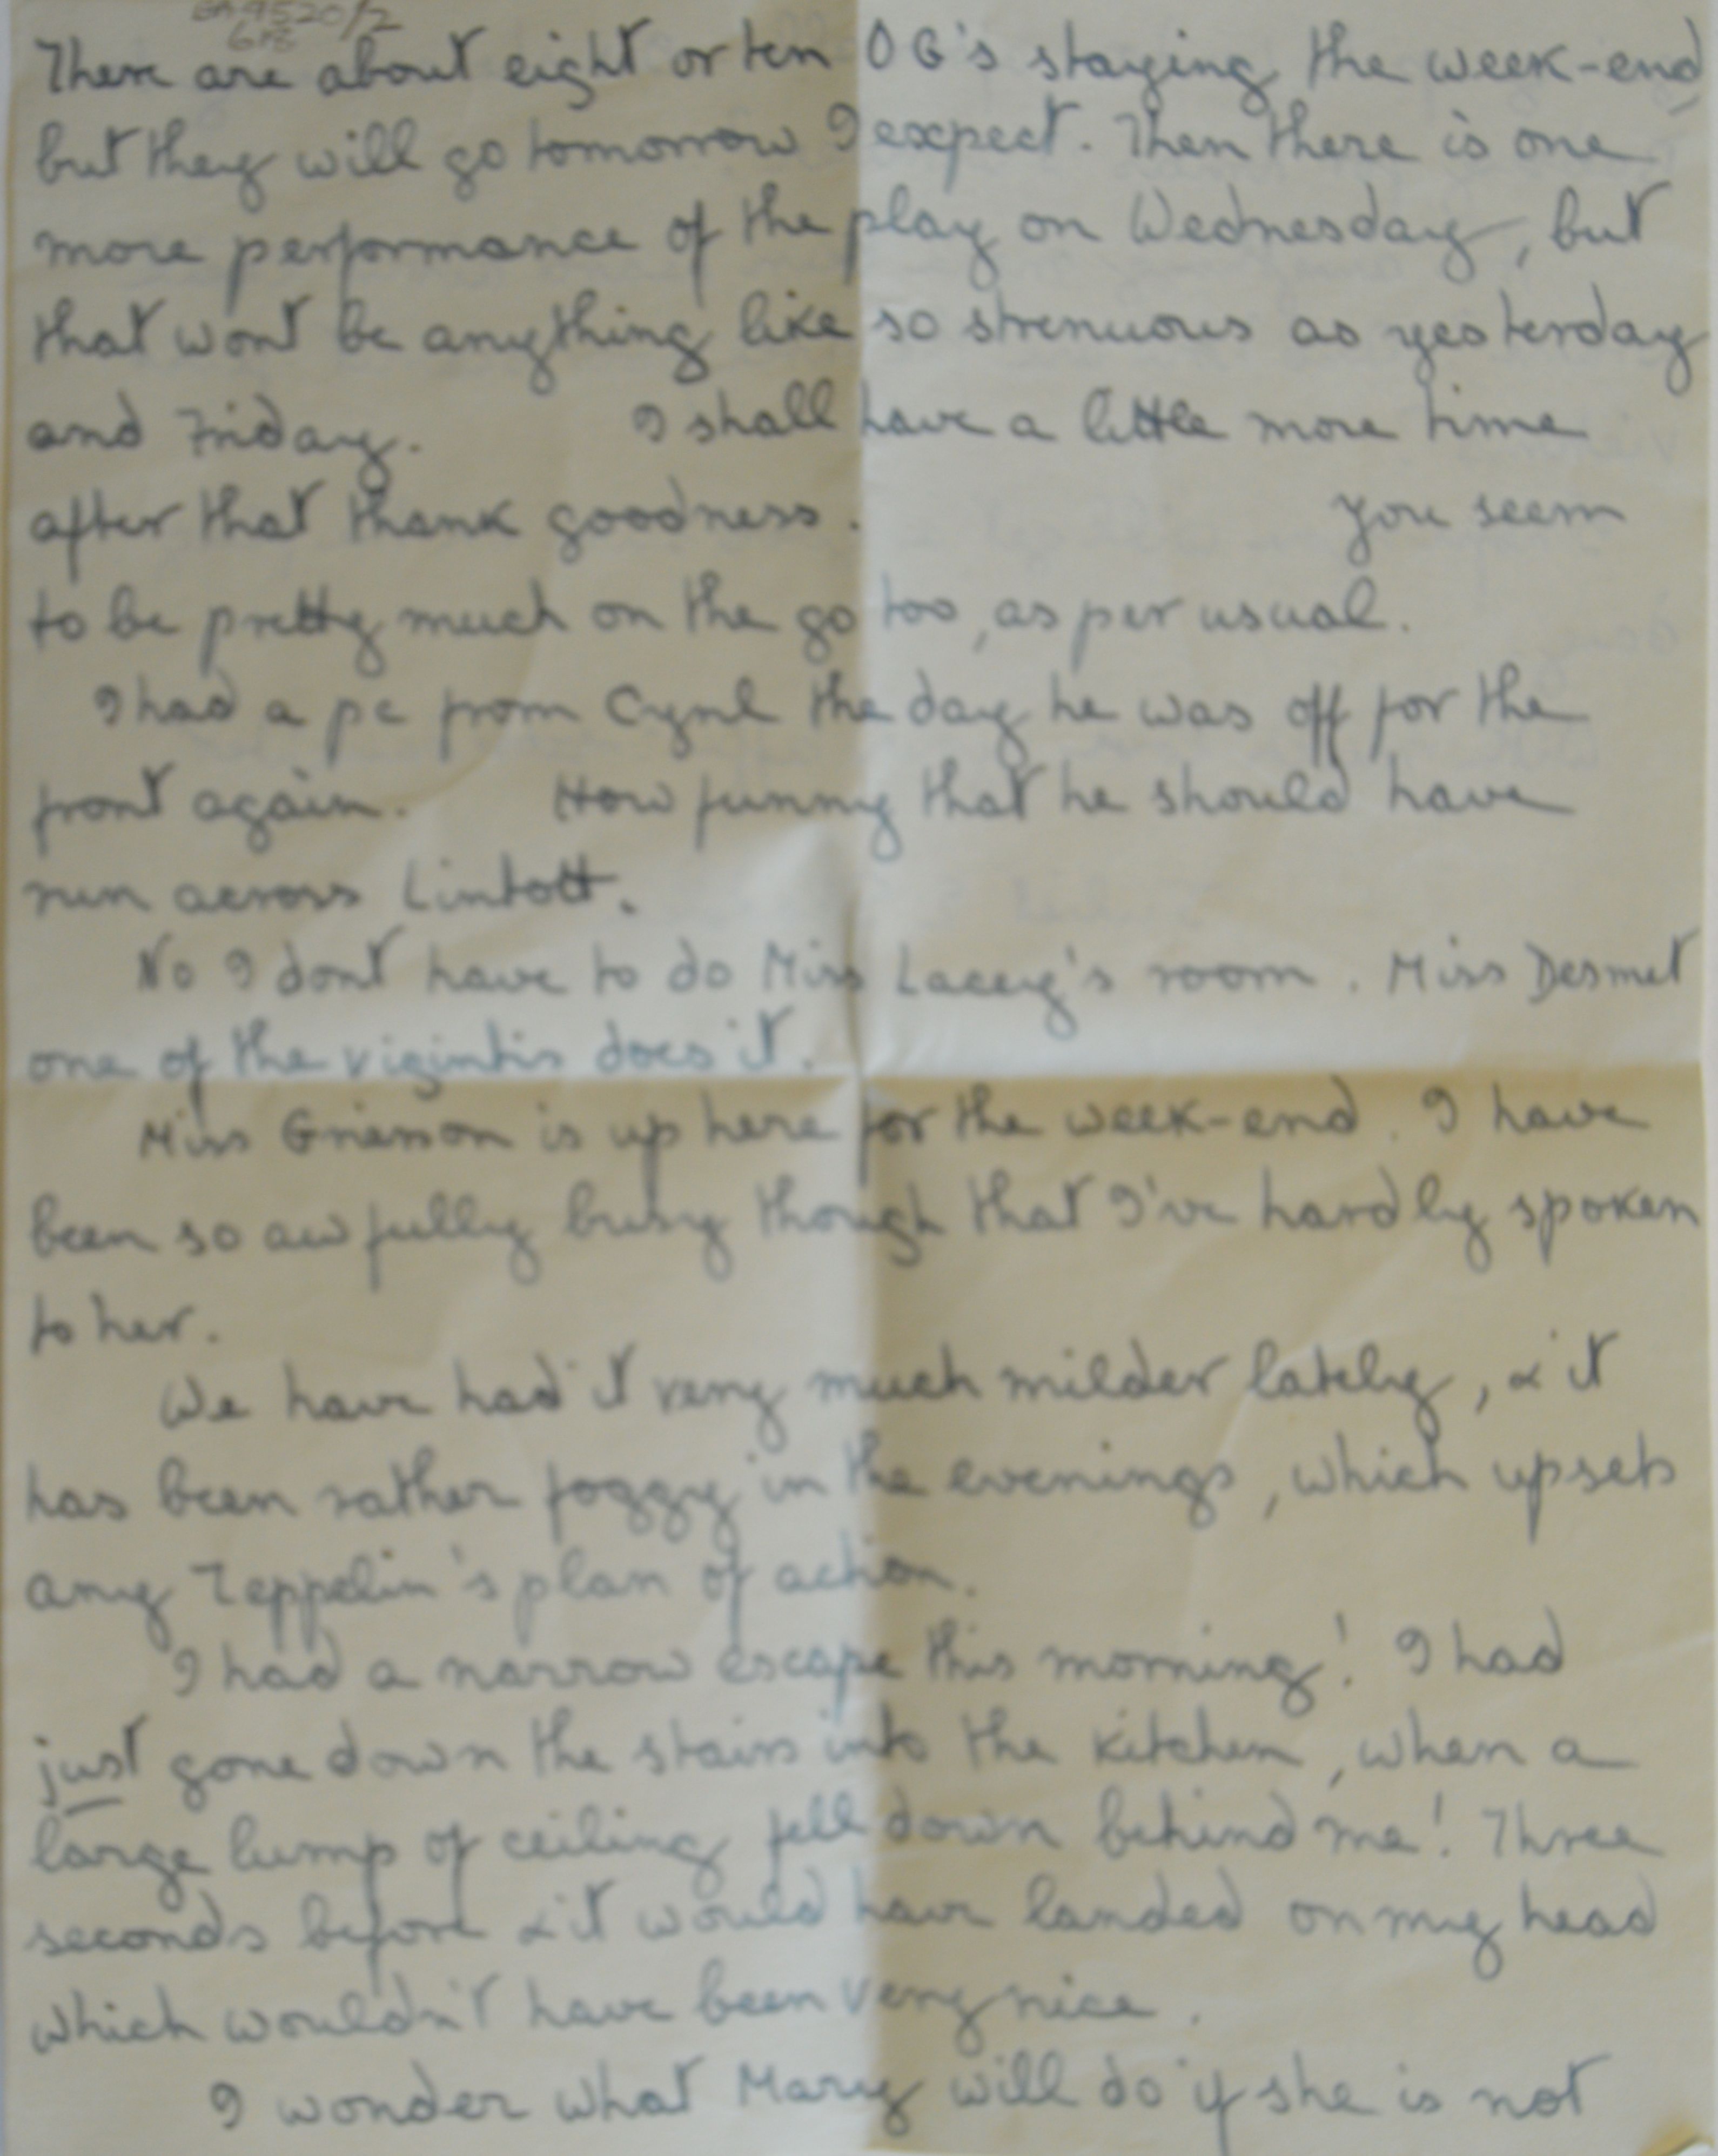 There are about eight or ten OG's staying the week-end,
but they will go tomorrow I expect. Then there is one
more performance of the play on Wednesday, but
that wont be anything like so strenuous as yesterday
and Friday. I shall have a little more time
after that thank goodness. You seem
to be pretty much on the go too, as per usual.
I had a pc from Cyril the day he was off for the
front again. How funny that he should have
run across Lintott.
No I dont have to do Miss Lacey's room. Miss Desmet
one of the vigintis does it.
Miss Grierson is up here for the week-end. I have
been so awfully busy though that I've hardly spoken
to her.
We have had it very much milder lately, & it
has been rather foggy in the evenings, which upsets
any Zeppelin's plan of action.
I had a narrow escape this morning! I had
just gone down the stairs into the kitchen, when a
large lump of ceiling fell down behind me! Three
seconds before & it would have landed on my head
which wouldn't have been very nice.
I wonder what Mary will do if she is not